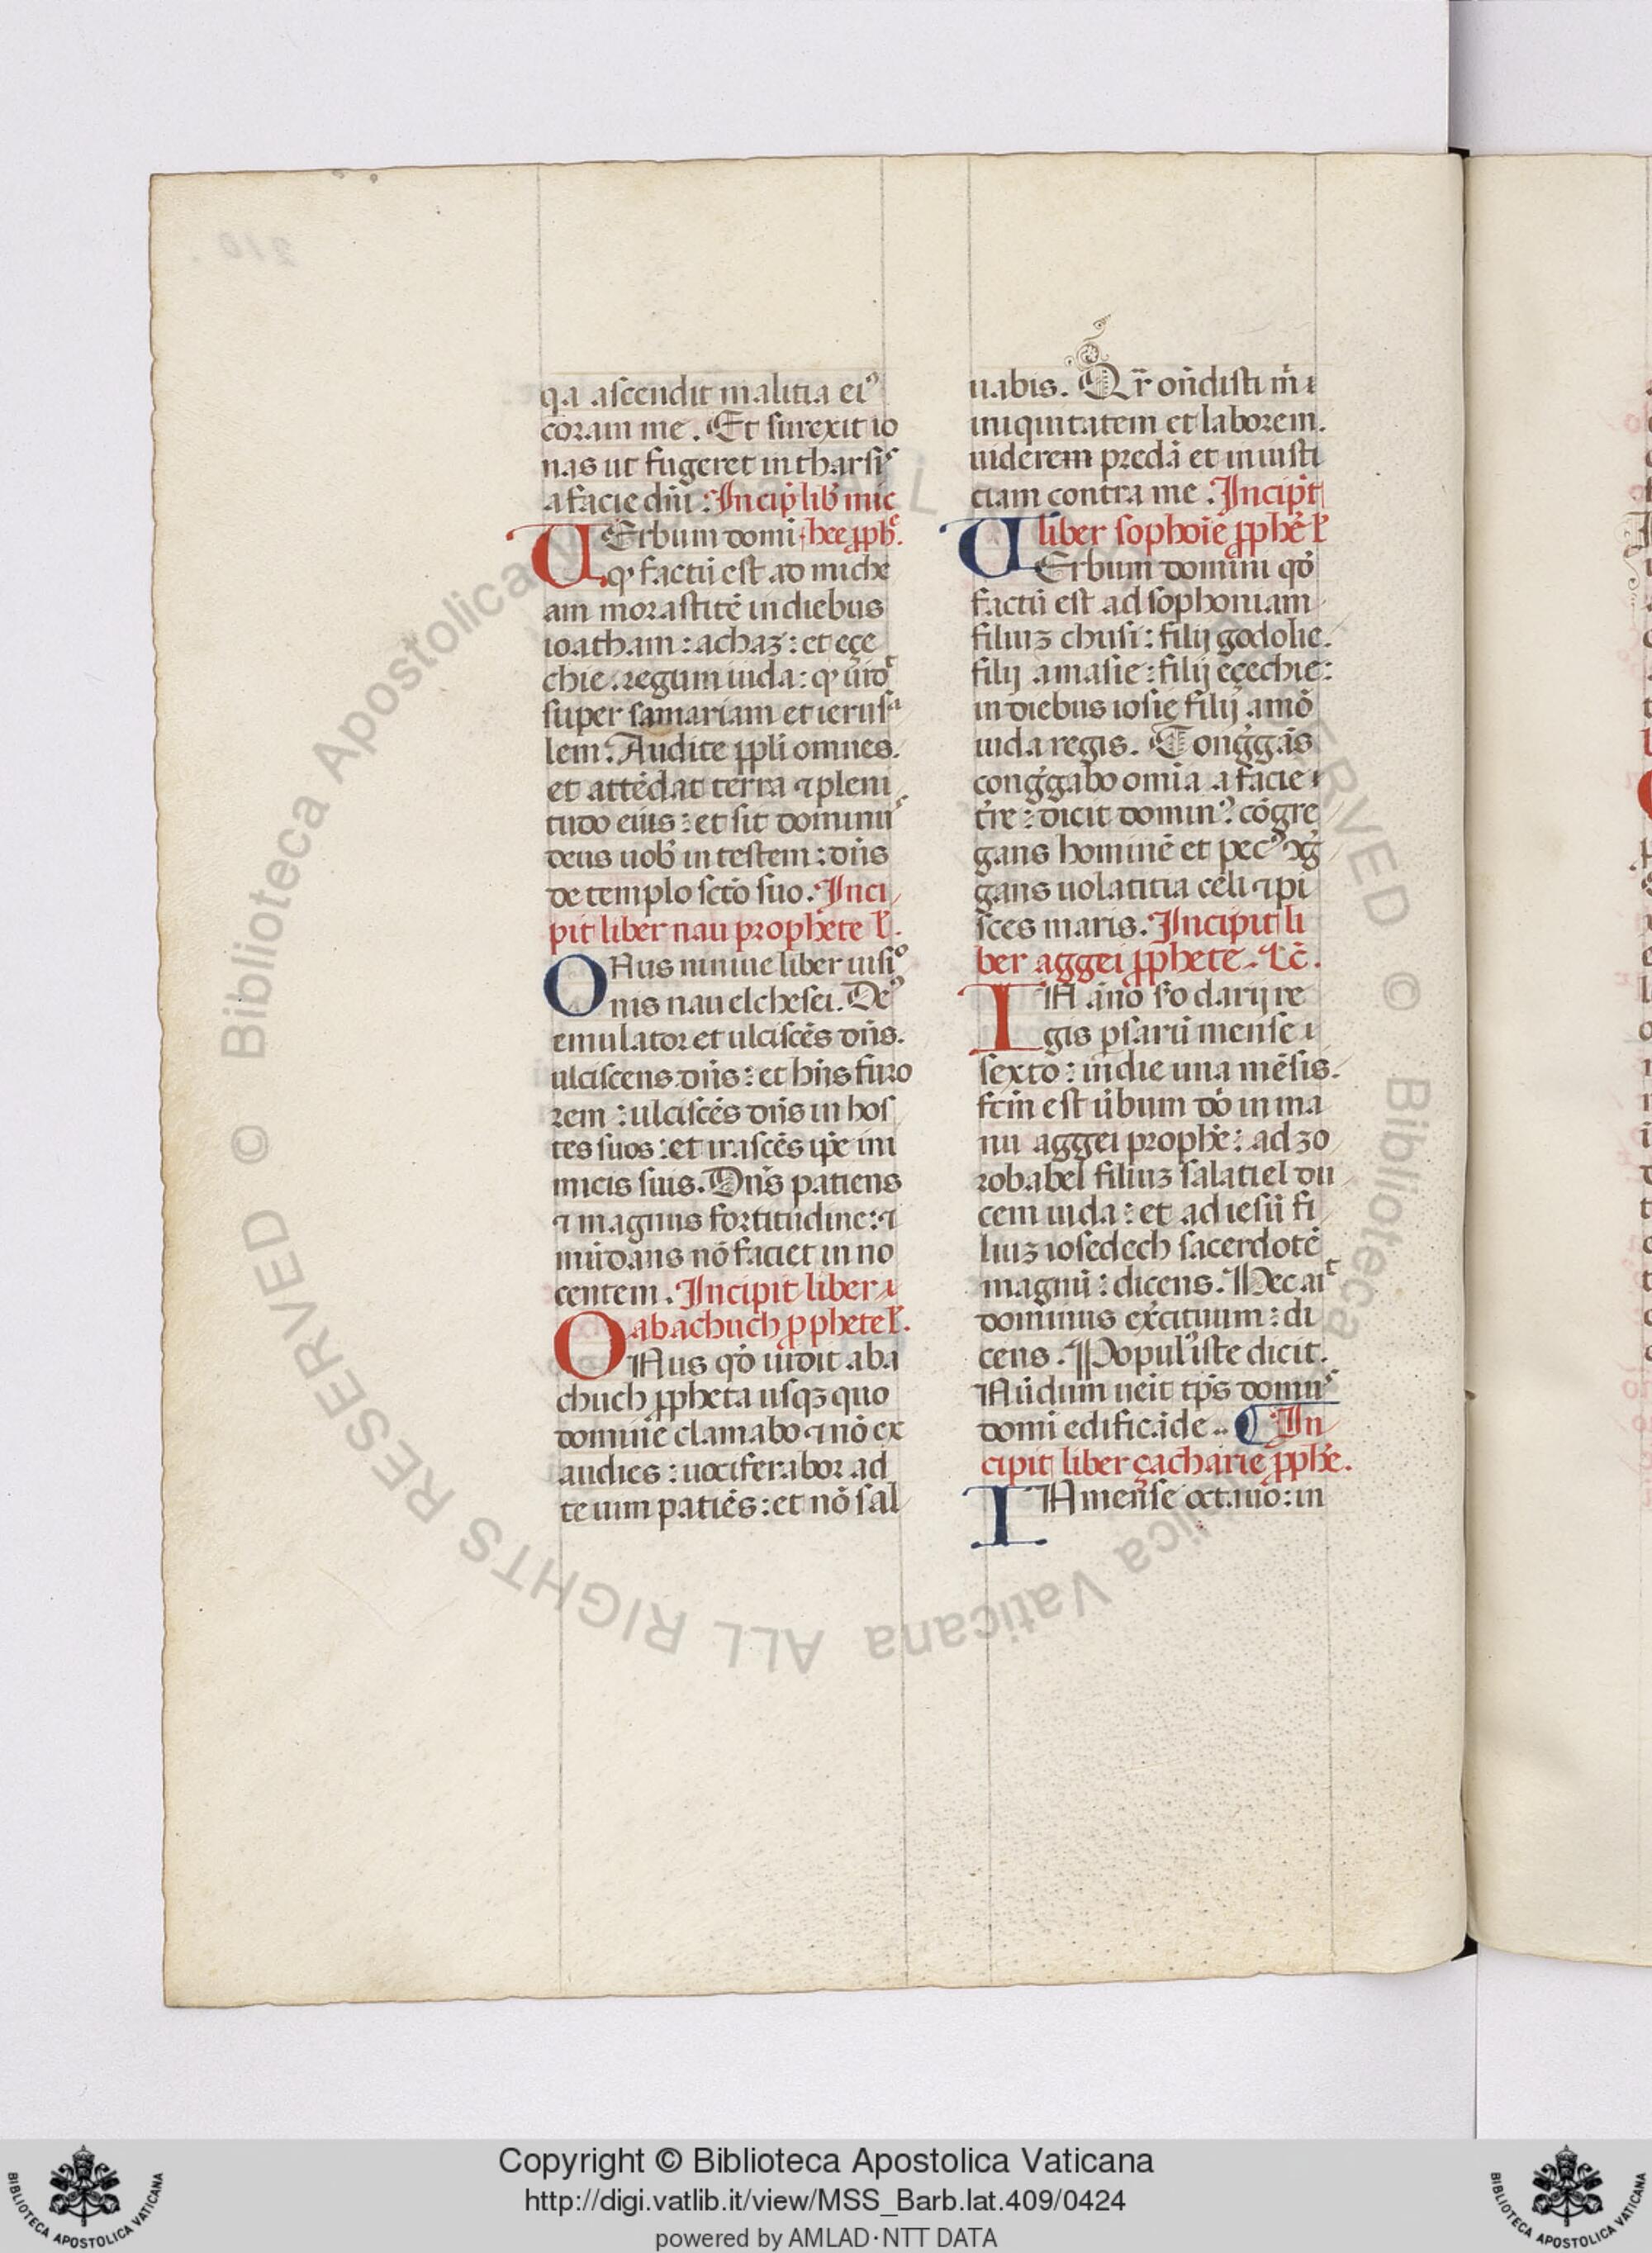 qa ascendit malitia ei9
coram me. Et surexit io
nas ut fugeret in tharsis
a facie dn̄i. Incip̄ lib̄ mic
Uerbum domi hee ꝓph̄e.
qꝰ factū est ad miche
am morastitē in diebus
ioatham: achaz: et eçe
chie. regum iuda: qꝰ uidᵗ
super samariam et ierusa
lem. Audite ppl̄i omnes.
et attēdat terra ⁊ pleni
tudo eius: et sit dominus
deus uob̄ in testem: dn̄s
de templo sctō suo. Inci
pit liber nau prophete l̄.
Onus niniue liber uisio
nis nau elchesei. De9
emulator et ulciscēs dn̄s.
ulciscens dn̄s: et hn̄s furo
rem: ulciscēs dn̄s in hos
tes suos: et irascēs ip̄e ini
micis suis. Dn̄s patiens
⁊ magnus fortitudine: ⁊
mūdans nō faciet inno
centem. Incipit liber
abachuch ꝓphete l̄.
Onus qō uidit aba
chuch ꝓpheta usqꝫ quo
domine clamabo ⁊ nō ex
audies: uociferabor ad
te uim patiēs: et nō sal
uabis. Qr̄ on̄disti m̄
iniquitatem et laborem.
uiderem predā et iniusti
ciam contra me. Incip̄t
liber sophoīe ꝓphē l̄
Uerbum domini qō
factū est ad sophoniam
filiuꝫ chusi: filij godolie.
filij amasie: filij eçechie:
in diebus iosie filij amō
iuda regis. Conḡgās
conḡgabo omīa a facie
tr̄e: dicit domin9: cōgre
gans hominē et pec9 ꝯḡ
gans uolatitia celi ⁊ pi
sces maris. Incipit li
ber aggei ꝓphete. Lc̄.
IN āno sō darij re
gis psarū mense
sexto: in die una mēsis.
fcm̄ est ūbum dō in ma
nu aggei proph̄e: ad zo
robabel filiuꝫ salatiel du
cem iuda: et ad iesū fi
liuꝫ iosedech sacerdotē
magnū: dicens. Hec aiᵗ
dominus exc̄ituum: di
cens. Popul9 iste dicit.
Nūdum ueīt tp̄s domus
domī edificāde.. ¶ In
cipit liber çacharie ꝓph̄e.
IN mense octauo: in
Copyright © Biblioteca Apostolica Vaticana
http://digi.vatlib.it/view/MSS_Barb.lat.409/0424
powered by AMLAD·NTT DATA